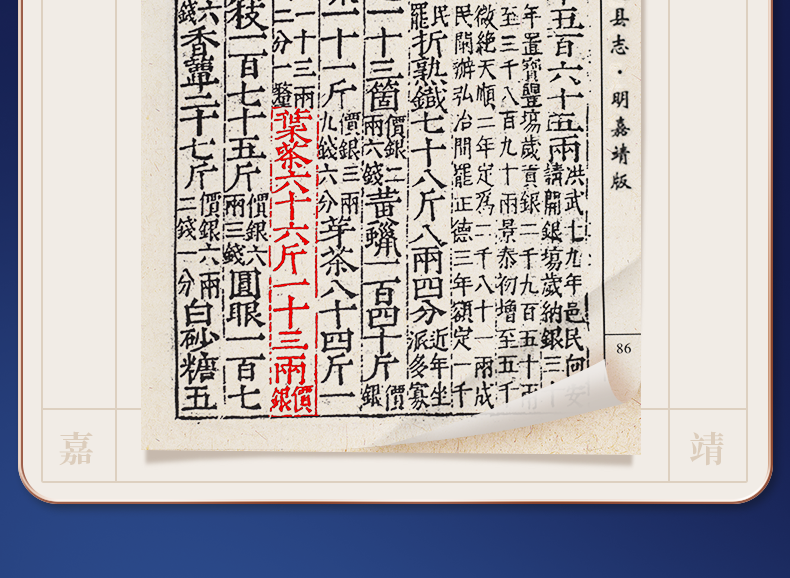 县志·明嘉靖版
86
五百六十五兩
洪武十九年邑民向安
請開銀場歲納銀三十
年置寶豐場歲貢銀二千九百五十兩
至三千八百九十兩景泰初增至五千
微絶天順二年定爲二千八十一兩成
民閙辦弘治間罷正德三年額定一千
民
罷
折熟鐵七十八斤八兩四分
近年坐
派多寡
一十三箇
價銀二
兩六錢
黄蠟一百四十斤
價
銀
一十一斤
價銀三兩
九錢六分
芽茶八十四斤一
一十三兩
二分一釐
葉茶六十六斤一十三兩
價
銀
枝一百七十五斤
價銀六
兩三錢
圓眼一百七
六
錢
香蕈二十七斤
價銀六兩
二錢一分
白砂糖五
嘉
靖